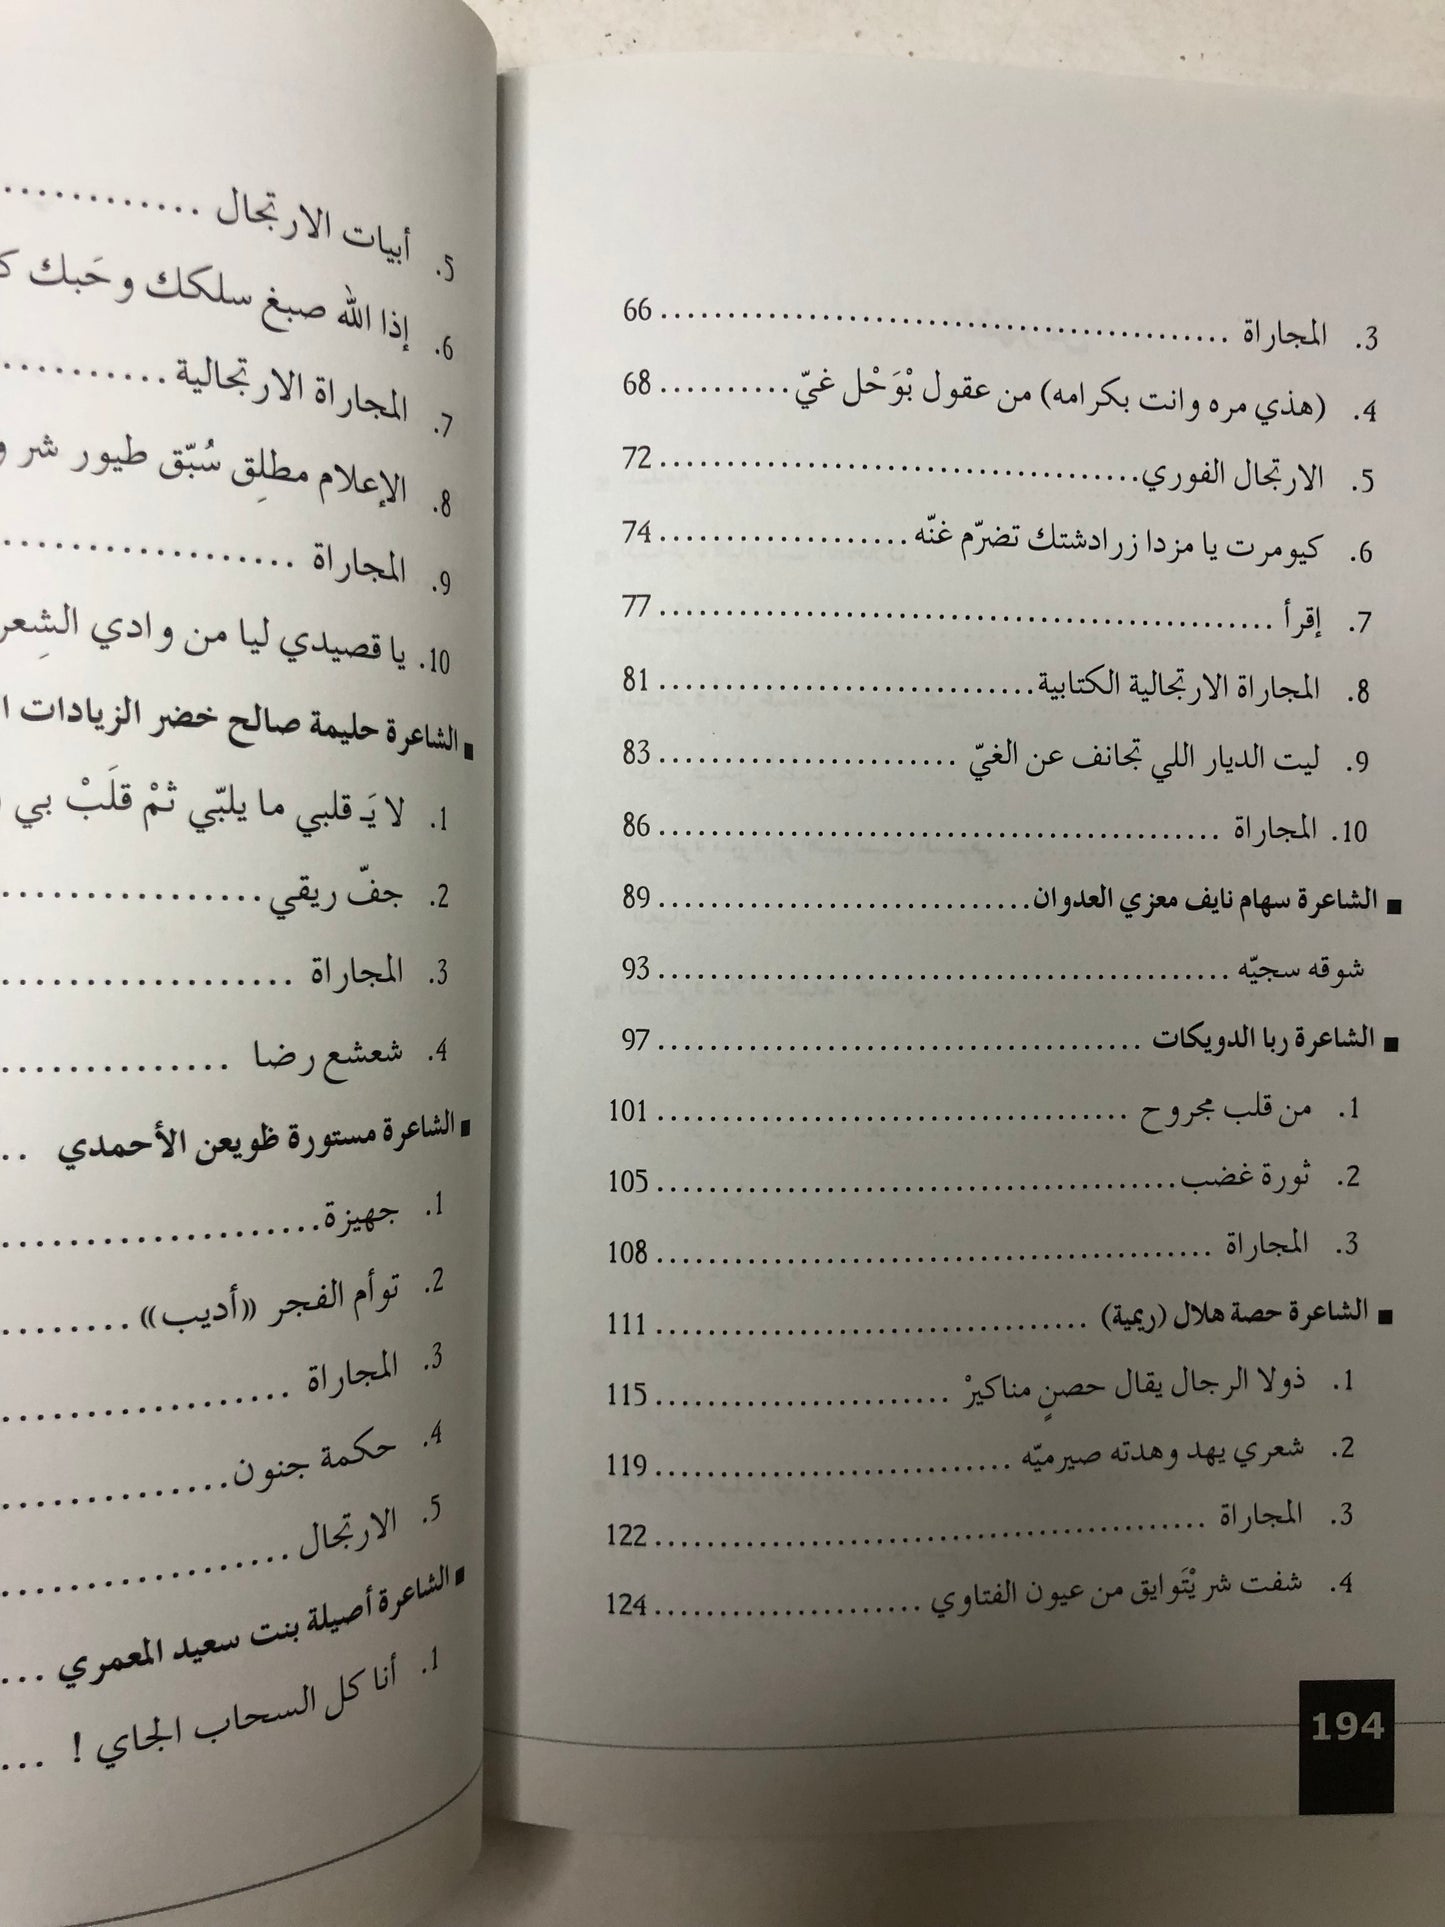 3. المجاراة ........................................ 66
4. (هذي مره وانت بكرامه) من عقول بْوَحْل غيّ.......... 68
5. الارتجال الفوري..................................... 72
6. كيومرت يا مزدا زرادشتك تضرّم غنّه................... 74
7. إقرأ ............................................... 77
8. المجاراة الارتجالية الكتابية............................. 81
9. ليت الديار اللي تجانف عن الغيّ ....................... 83
10. المجاراة ........................................... 86
■ الشاعرة سهام نايف معزي العدوان............................. 89
شوقه سجيّه ............................................ 93
■ الشاعرة ربا الدويكات ..................................... 97
1. من قلب مجروح .................................... 101
2. ثورة غضب........................................ 105
3. المجاراة ........................................... 108
■ الشاعرة حصة هلال (ريمية) ................................. 111
1. ذولا الرجال يقال حصنٍ مناكيرْ ....................... 115
2. شعري يهد وهدته صيرميّه ............................ 119
3. المجاراة ........................................... 122
4. شفت شر يْتَوايق من عيون الفتاوي ..................... 124
194
5. أبيات الارتجال ............
6. إذا الله صبغ سلكك وحَبك
7. المجاراة الارتجالية ...........
8. الإعلام مطلِق سُبّق طيور شر
9. المجاراة ..................
10. يا قصيدي ليا من وادي الشِعر
■ الشاعرة حليمة صالح خضر الزيادات
1. لا يَـ قلبي ما يلبّي ثمْ قلَبْ بي
2. جفّ ريقي.................
3. المجاراة ...................
4. شعشع رضا ...............
■ الشاعرة مستورة ظويعن الأحمدي ..
1. جهيزة.....................
2. توأم الفجر «أديب» .........
3. المجاراة ...................
4. حكمة جنون...............
5. الارتجال ..................
■ الشاعرة أصيلة بنت سعيد المعمري ...
1. أنا كل السحاب الجاي ! ...